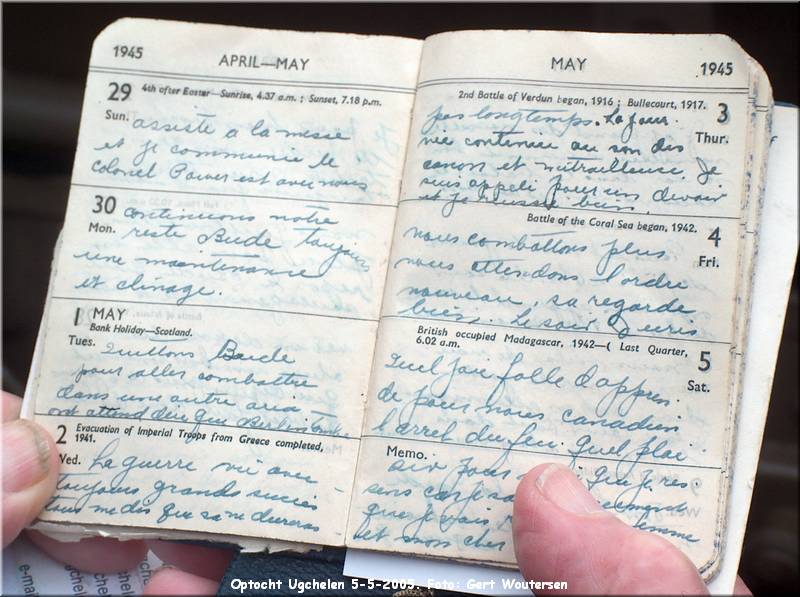 1945
APRIL—MAY
29
4th after Easter—Sunrise, 4.37 a.m. ; Sunset, 7.18 p.m.
Sun.
assiste a la messe
et je communie le
Colonel Power est avec nous
30
Mon.
continuons notre
reste Bude toujours
une maintenance
et clinage.
1 MAY
Bank Holiday—Scotland.
Tues.
Quittons Bude
pour aller combattre
dans une autre aria
ont attend dire que Berlin tombe
2
Evacuation of Imperial Troops from Greece completed,
1941.
Wed.
La guerre vie avec
toujours grands succès
tous me dis que sa ne durera
MAY
1945
2nd Battle of Verdun began, 1916 ; Bullecourt, 1917.
3
Thur.
pas longtemps. La jour
vie contenue au son des
canon et mitrailleuse. Je
suis appeli pour un devoir
et je
Battle of the Coral Sea began, 1942.
4
Fri.
nous combattons plus
nous attendons l'ordre
nouveau, sa regarde
bien. Le soir
British occupied Madagascar, 1942—( Last Quarter,
6.02 a.m.
5
Sat.
Quel joie folle d'appren
de pour nous canadien
l'arret du feu. Quel plai
Memo.
sir pour que je res
sens car
que je vais femme
et mon cher
e-ma
Optocht Ugchelen 5-5-2005. Foto: Gert Woutersen